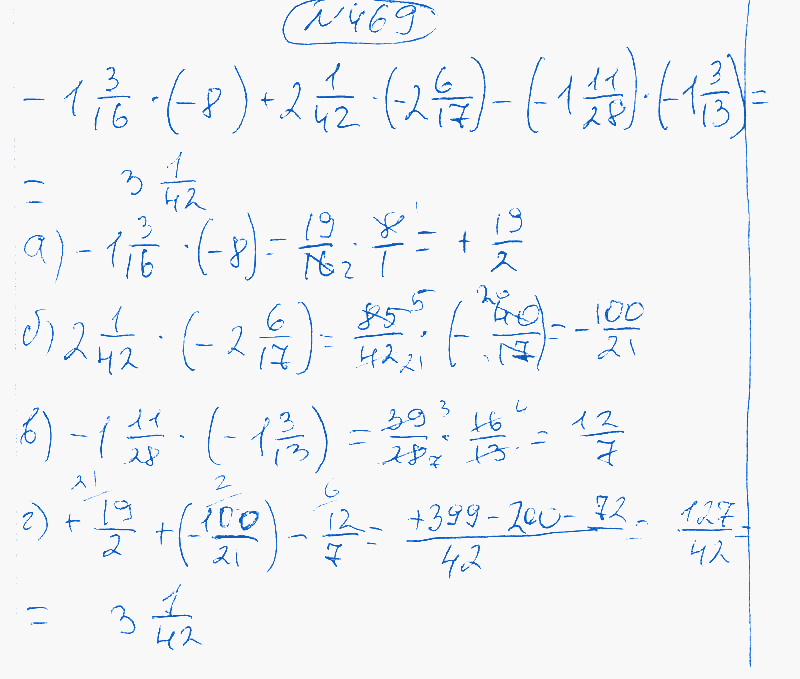 №469
- 1 3/16 · (-8) + 2 1/42 · (-2 6/17) - (-1 11/28) · (-1 3/13) =
= 3 1/42
а) - 1 3/16 · (-8) = 19/16 2 · 8 1/1 = + 19/2
б) 2 1/42 · (-2 6/17) = 85 5/42 21 · (- 40 20/17) = - 100/21
в) - 1 11/28 · (-1 3/13) = 39 3/28 7 · 16 4/13 = 12/7
21 2 6
г) + 19/2 + (-100/21) - 12/7 = +399-200-72/42 = 127/42 =
= 3 1/42